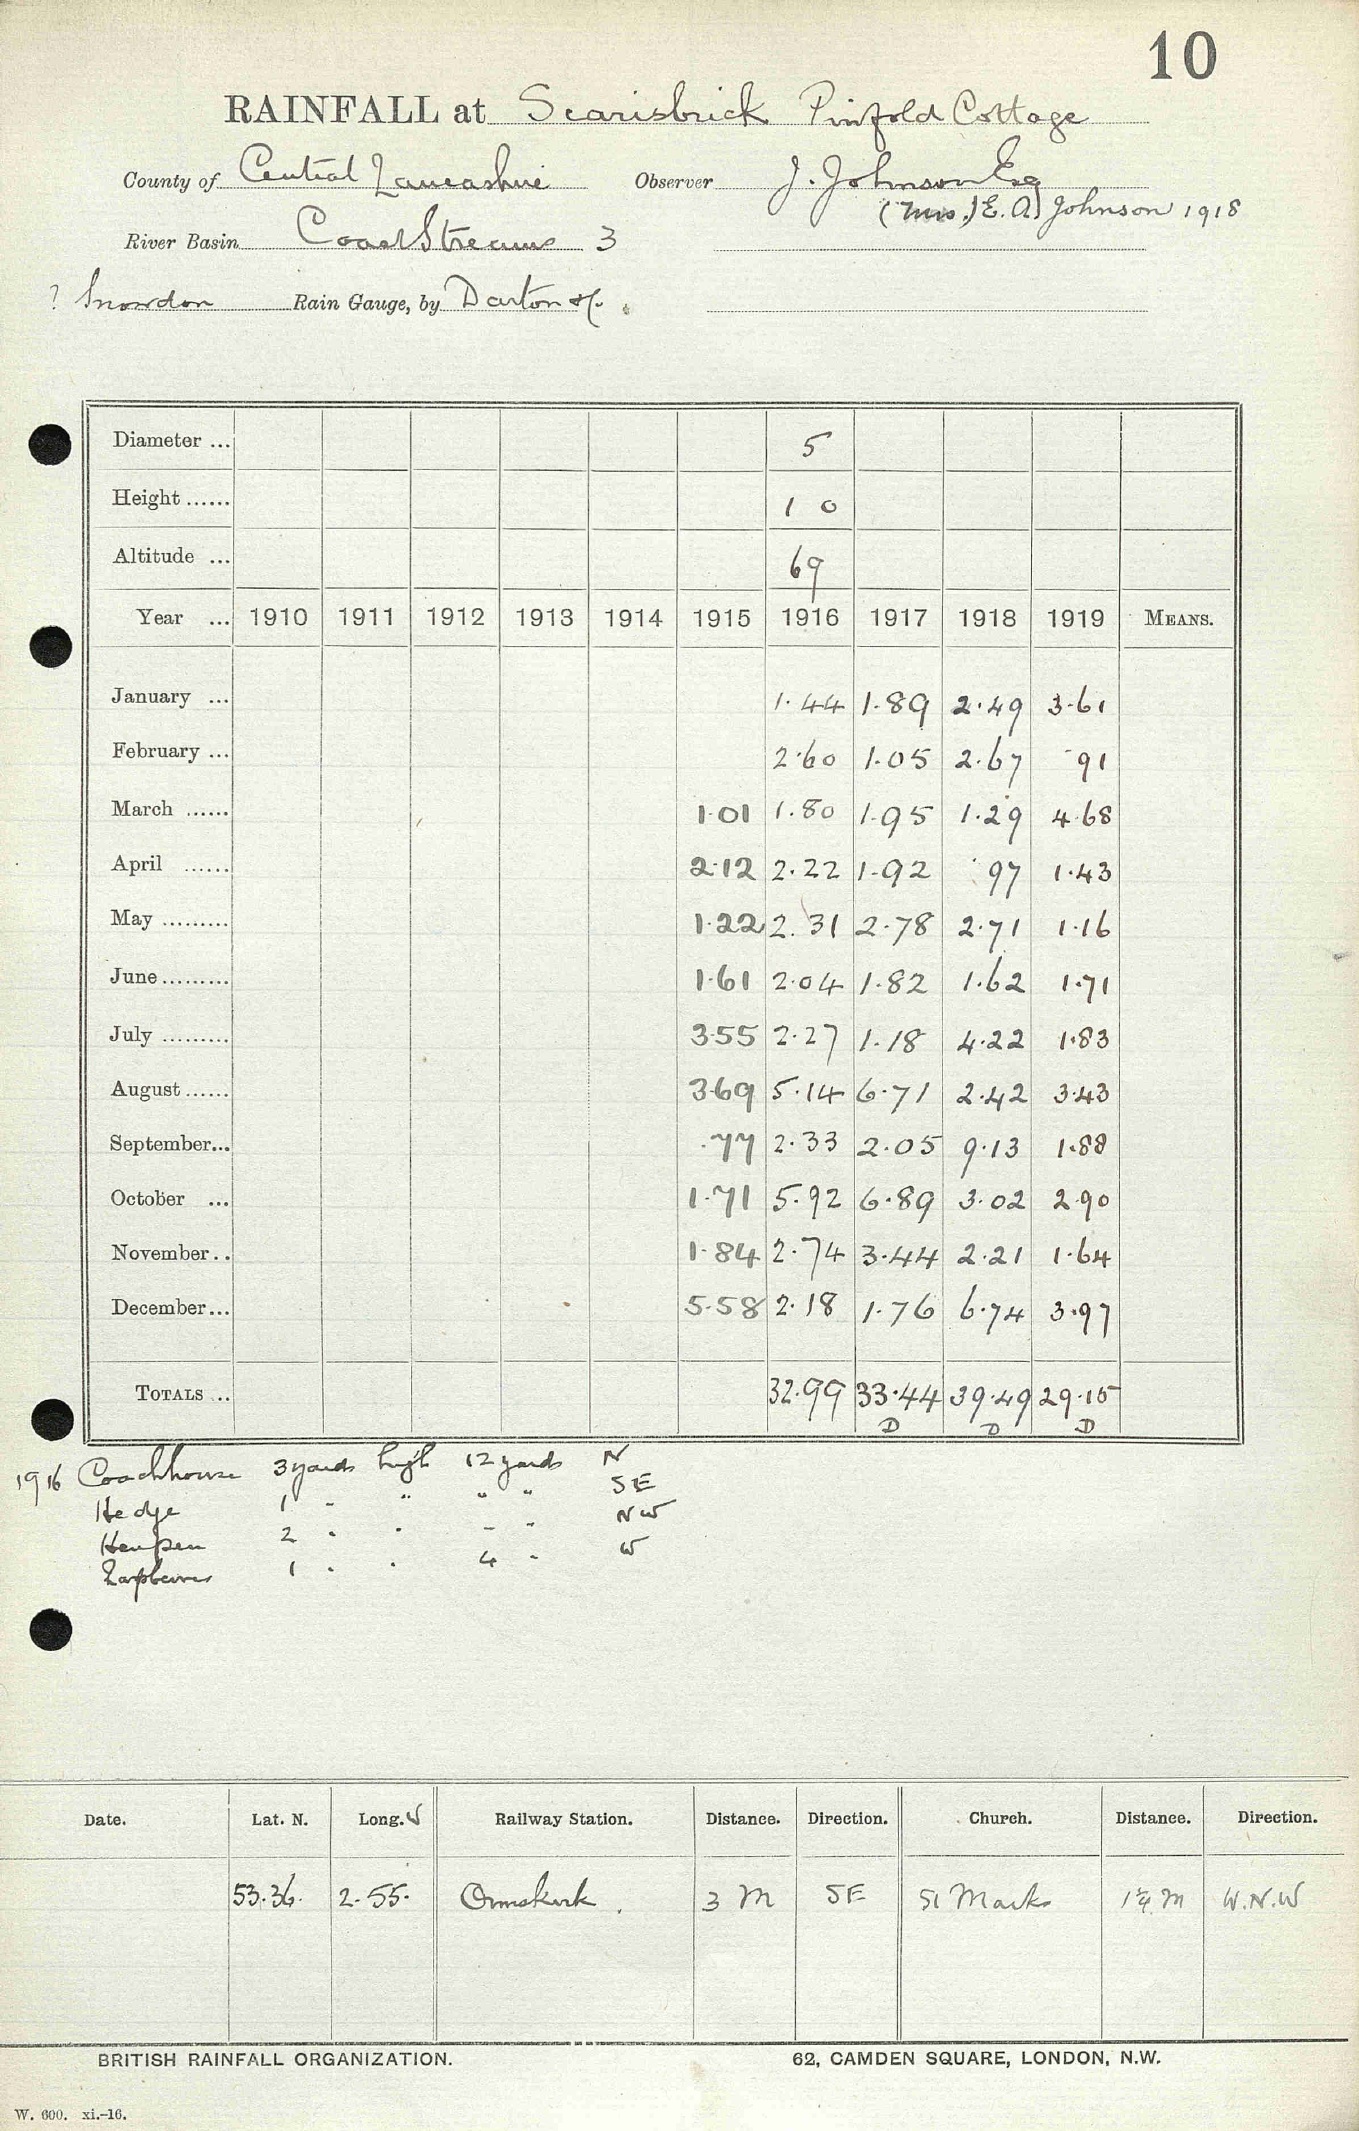 10
RAINFALL at Scarisbrick Pinfold Cottage
County of Central Lancashire Observer J. Johnson Esq
(Mrs.) E. A. Johnson 1918
River Basin Coast Streams 3
? Snowdon Rain Gauge, by Darton & Co.
Diameter ... 5
Height ...... 1 0
Altitude ... 69
Year ... 1910 1911 1912 1913 1914 1915 1916 1917 1918 1919 MEANS.
January ... 1.44 1.89 2.49 3.61
February ... 2.60 1.05 2.67 .91
March ...... 1.01 1.80 1.95 1.29 4.68
April ...... 2.12 2.22 1.92 .97 1.43
May ......... 1.22 2.31 2.78 2.71 1.16
June ......... 1.61 2.04 1.82 1.62 1.71
July ......... 3.55 2.27 1.18 4.22 1.83
August ...... 3.69 5.14 6.71 2.42 3.43
September... .77 2.33 2.05 9.13 1.88
October ... 1.71 5.92 6.89 3.02 2.90
November.. 1.84 2.74 3.44 2.21 1.64
December... 5.58 2.18 1.76 6.74 3.97
TOTALS .. 32.99 33.44 39.49 29.15
D D D
1916 Coachhouse 3 yards high 12 yards N
Hedge 1 " " " " SE
Henpen 2 " " " " NW
1 " " 4 " W
Date. Lat. N. Long. W Railway Station. Distance. Direction. Church. Distance. Direction.
53.36. 2.55. Ormskirk. 3 M SE St Marks 1¼ M W.N.W
BRITISH RAINFALL ORGANIZATION. 62, CAMDEN SQUARE, LONDON, N.W.
W. 600. xi.–16.